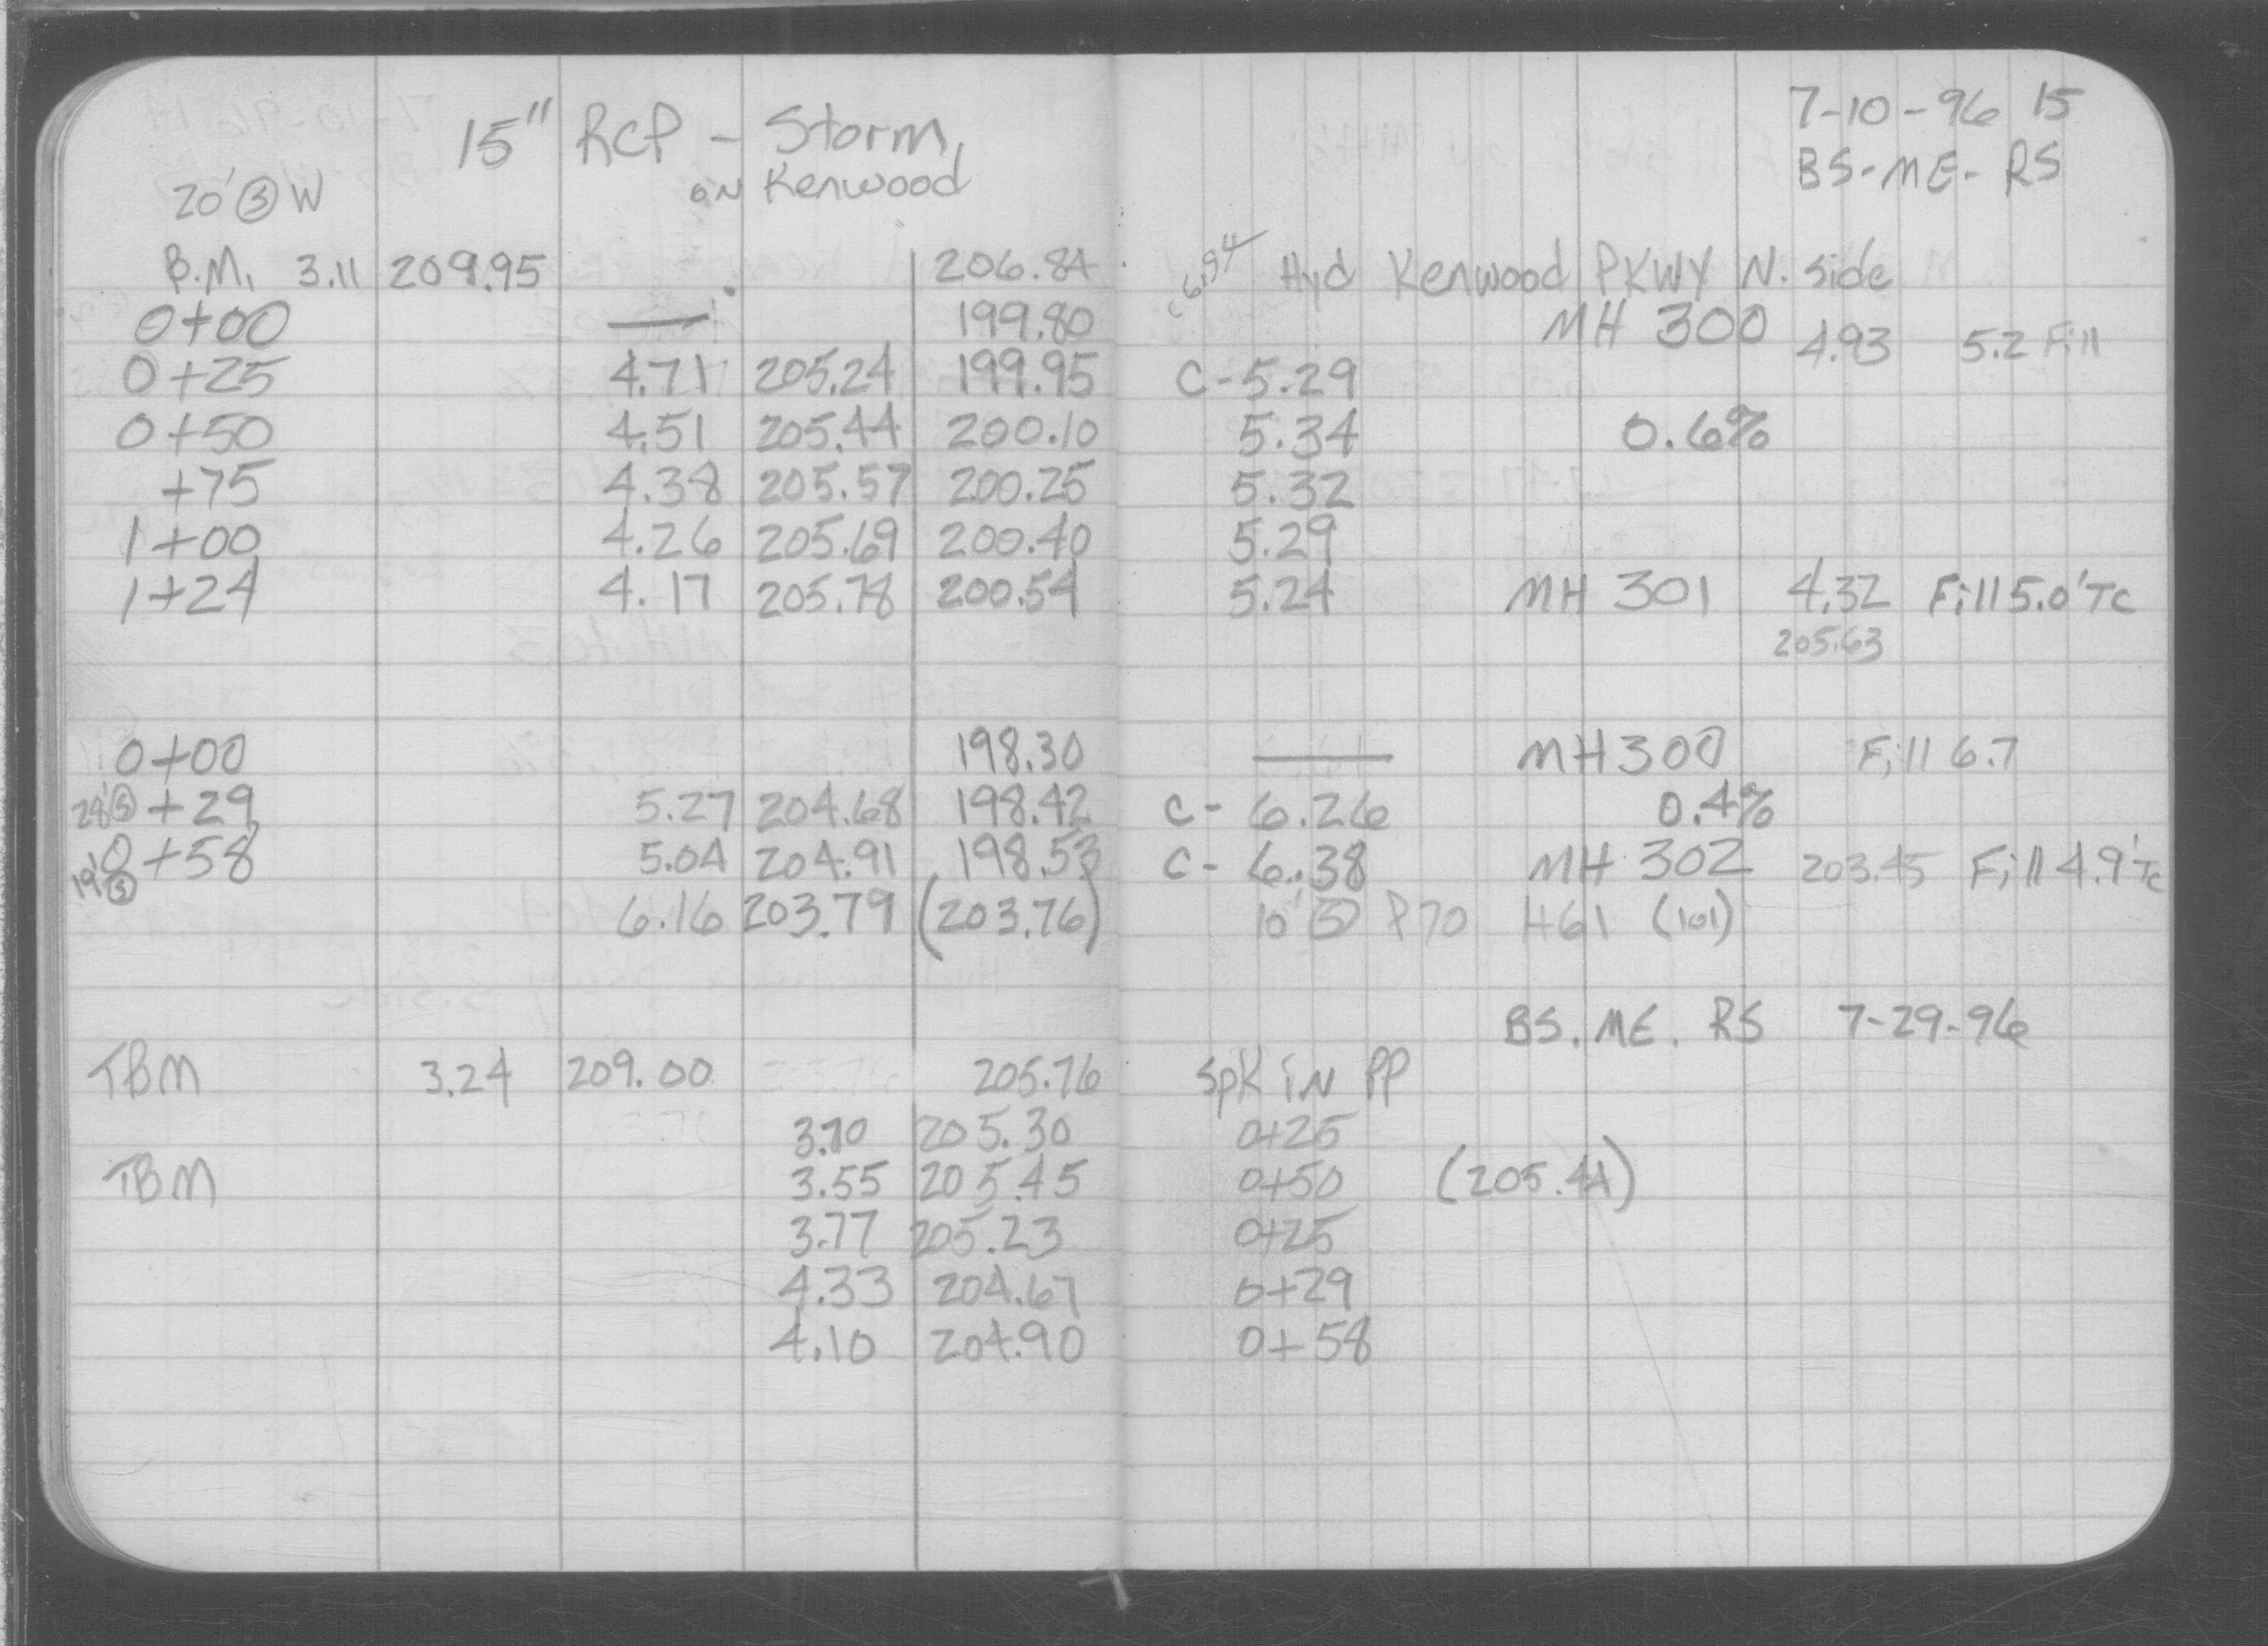 7-10-96 15
15" RCP - Storm
BS-ME-RS
20' Ⓢ W on Kenwood
B.M. 3.11 209.95 206.84 Hyd Kenwood PKWY N. side
0+00 — 199.80 MH 300 4.93 5.2 Fill
0+25 4.71 205.24 199.95 C-5.29
0+50 4.51 205.44 200.10 5.34 0.6%
+75 4.38 205.57 200.25 5.32
1+00 4.26 205.69 200.40 5.29
1+24 4.17 205.78 200.54 5.24 MH 301 4.32 Fill 5.0' TC
205.63
0+00 198.30 — MH 300 Fill 6.7
28' Ⓢ +29 5.27 204.68 198.42 C- 6.26 0.4%
19' Ⓢ 0+58 5.04 204.91 198.53 C- 6.38 MH 302 203.45 Fill 4.9' TC
6.16 203.79 (203.76) 10' Ⓢ P70 H61 (101)
BS. ME. RS 7-29-96
TBM 3.24 209.00 205.76 SPK IN PP
3.70 205.30 0+25
TBM 3.55 205.45 0+50 (205.44)
3.77 205.23 0+25
4.33 204.67 0+29
4.10 204.90 0+58